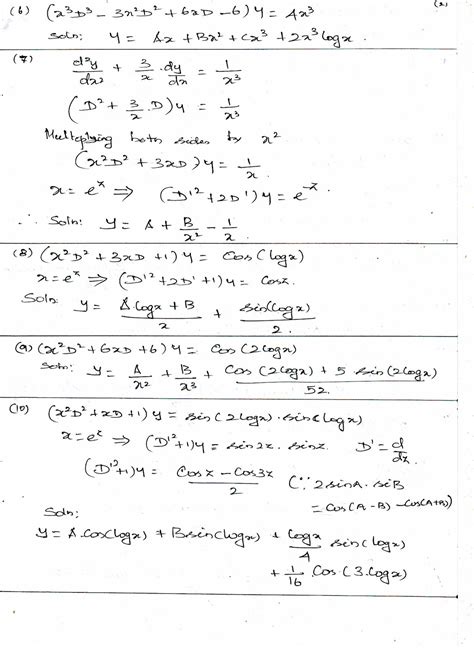 (6) (x³D³ - 3x²D² + 6xD - 6) y = Ax³
Soln: y = Ax + Bx² + Cx³ + 2x³ logx.
(7) d²y/dx² + 3/x · dy/dx = 1/x³
(D² + 3/x · D) y = 1/x³
Multiplying both sides by x²
(x²D² + 3xD) y = 1/x.
x = e^z ⇒ (D'² + 2D') y = e^-z
∴ Soln: y = A + B/x² - 1/x.
(8) (x²D² + 3xD + 1) y = Cos (logx)
x = e^z ⇒ (D'² + 2D' + 1) y = Cosz.
Soln: y = (A. logx + B)/x + sin(logx)/2.
(9) (x²D² + 6xD + 6) y = Cos (2logx)
Soln: y = A/x² + B/x³ + (Cos (2logx) + 5 sin (2logx))/52.
(10) (x²D² + xD + 1) y = sin (2logx) · sin (logx)
x = e^z ⇒ (D'² + 1) y = sin 2z . sinz. D' = d/dz.
(D'² + 1) y = (Cosz - Cos3z)/2 (∵ 2 sinA. sinB
= Cos (A - B) - Cos(A+B))
Soln:
y = A. cos(logx) + B sin(logx) + logx/4 sin (logx)
+ 1/16 Cos (3. logx)